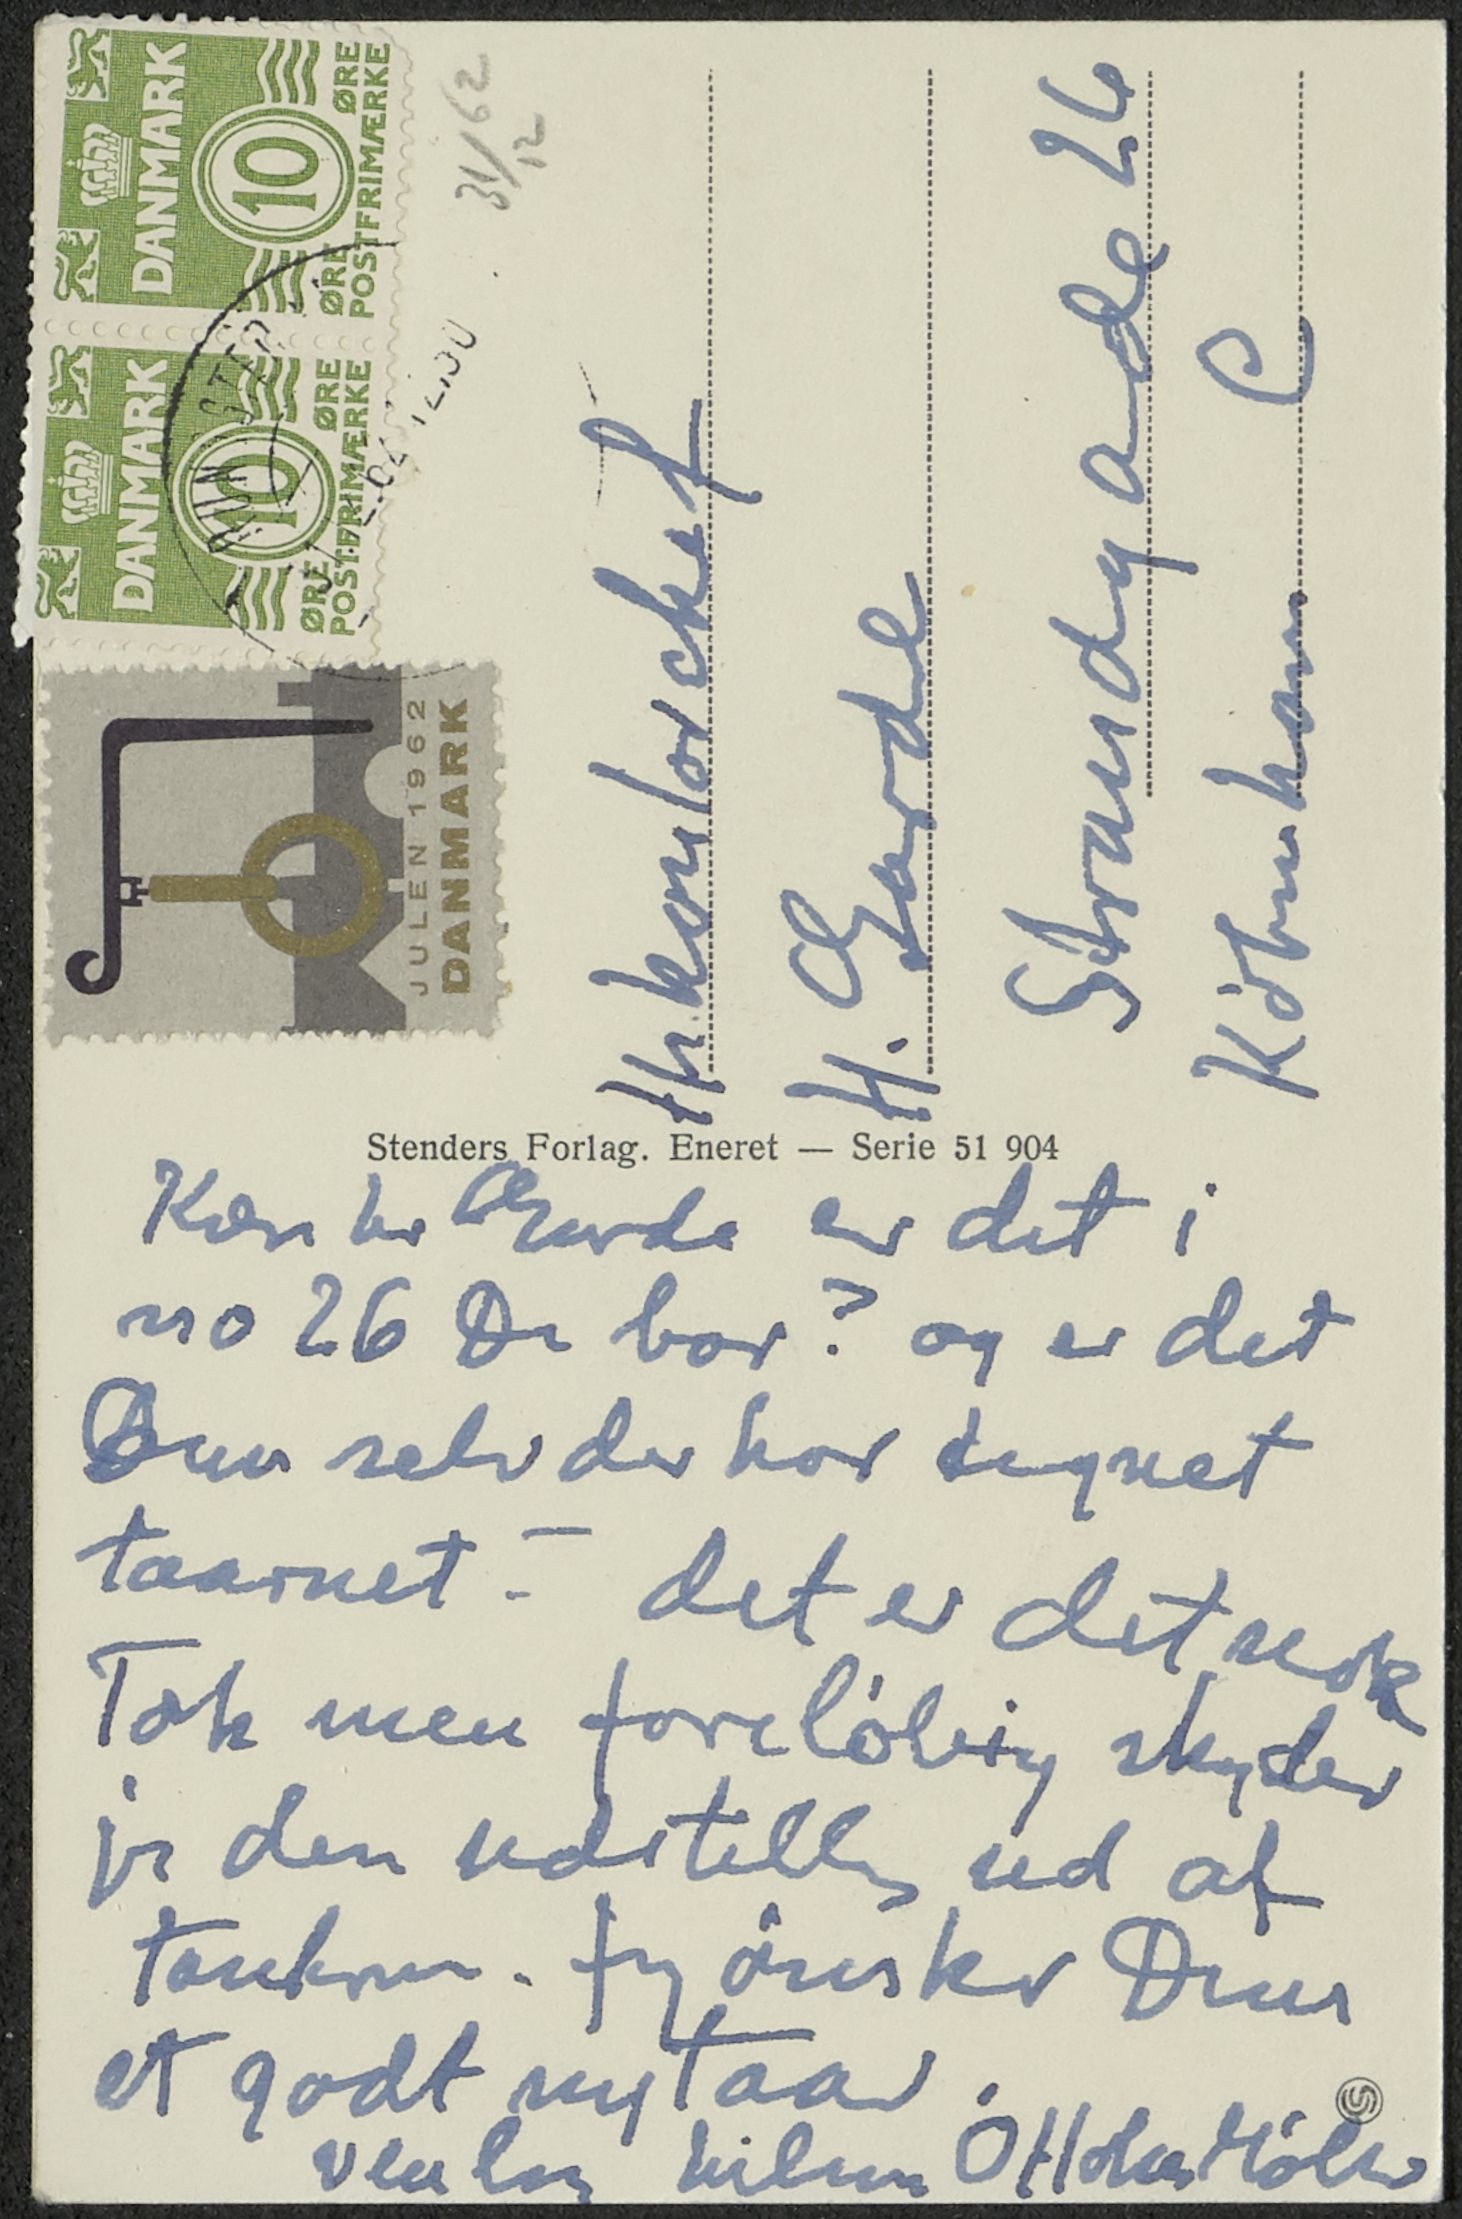 DANMARK
10
ØRE ØRE
POSTFRIMÆRKE
DANMARK
10
ØRE ØRE
POSTFRIMÆRKE
JULEN 1962
DANMARK
31/12 62
Hr. kontorchef
H. Garde
Strandgade 26
København C
Stenders Forlag. Eneret — Serie 51 904
Kære hr Garde er det i
no 26 De bor? og er det
Dem selv der har tegnet
taarnet - det er det nok
Tak men foreløbig skyder
jeg den udstilling ud af
tanken. Jeg ønsker Dem
et godt nytaar.
venlig hilsen Otto